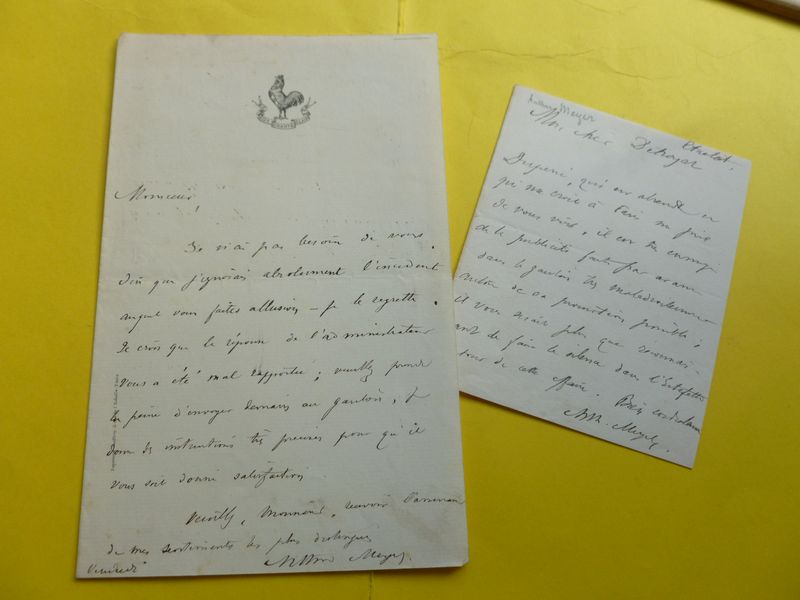 Monsieur,
Je n'ai pas besoin de vous
dire que j'ignorais absolument l'incident
auquel vous faites allusion — je le regrette.
Je crois que la réponse de l'administrateur
vous a été mal rapportée ; veuillez prendre
la peine d'envoyer demain au gaulois, je
donne des instructions très précises pour qu'il
vous soit donné satisfaction.
Veuillez, Monsieur, recevoir l'assurance
de mes sentiments les plus distingués
Arthur Meyer
Vendredi
Arthur Meyer
Etretat,
Mon cher Detroyat
qui me croit à Paris me prie
de vous voir, il est très ennuyé
de la publicité faite par avance
dans le gaulois très maladroitement
de sa promotion possible ;
il vous serait plus que reconnais-
sant de faire le silence dans l'Estafette
de cette affaire. Bien cordialement
Arth. Meyer